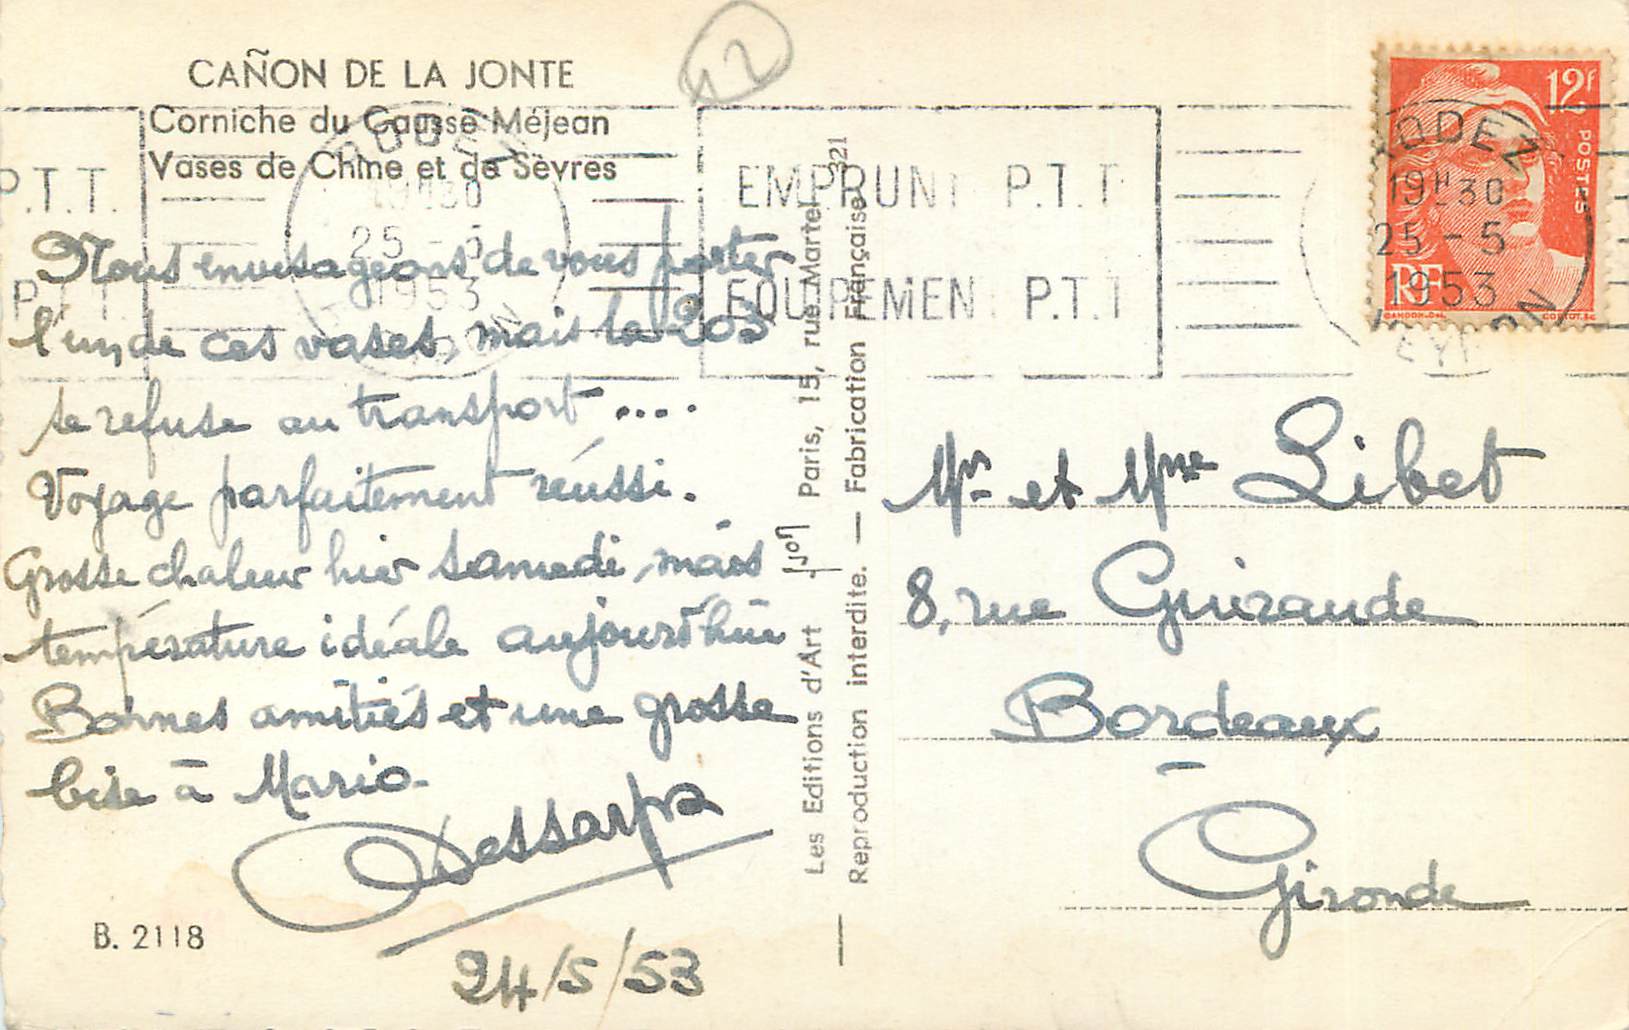 CAÑON DE LA JONTE
Corniche du Causse Méjean
Vases de Chine et de Sèvres
12
P.T.T.
P.T.T.
RODEZ
19H30
25 - 5
1953
AVEYRON
EMPRUNT P.T.T
EQUIPEMENT P.T.T
12F
POSTES
RF
GANDON.DEL.
CORTOT.SC
RODEZ
19H30
25 - 5
1953
AVEYRON
Nous envisageons de vous porter
l'un de ces vases, mais la 203
se refuse au transport ....
Voyage parfaitement réussi.
Grosse chaleur hier samedi, mais
température idéale aujourd'hui
Bonnes amitiés et une grosse
bise à Mario.
Dessarps
24/5/53
B. 2118
Les Editions d'Art Yvon Paris, 15, rue Martel 321
Reproduction interdite. — Fabrication Française
Mr et Mme Libet
8, rue Guiraude
Bordeaux
Gironde